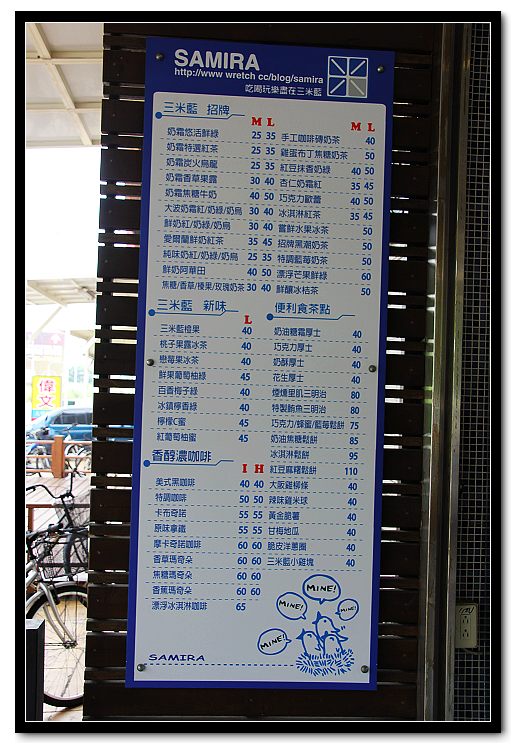 SAMIRA
http://www wretch cc/blog/samira
吃喝玩樂盡在三米藍
三米藍 招牌
M L
奶霜悠活鮮綠 25 35
奶霜特選紅茶 25 35
奶霜炭火烏龍 25 35
奶霜香草果露 30 40
奶霜焦糖牛奶 40 50
大波奶霜紅/奶綠/奶烏 30 40
鮮奶紅/奶綠/奶烏 30 40
愛爾蘭鮮奶紅茶 35 45
純味奶紅/奶綠/奶烏 25 35
鮮奶阿華田 40 50
焦糖/香草/榛果/玫瑰奶茶 30 40
M L
手工咖啡磚奶茶 40
雞蛋布丁焦糖奶茶 50
紅豆抹香奶綠 40 50
杏仁奶霜紅 35 45
巧克力歐蕾 40 50
冰淇淋紅茶 35 45
嘗鮮水果冰茶 50
招牌黑潮奶茶 50
特調藍莓奶茶 50
漂浮芒果鮮綠 60
鮮釀冰桔茶 50
三米藍 新味
L
三米藍橙果 40
桃子果露冰茶 40
戀莓果冰茶 40
鮮果葡萄柚綠 45
百香梅子綠 40
冰鎮檸香綠 40
檸檬C蜜 45
紅葡萄柚蜜 45
香醇濃咖啡
I H
美式黑咖啡 40 40
特調咖啡 50 50
卡布奇諾 55 55
原味拿鐵 55 55
摩卡奇諾咖啡 60 60
香草瑪奇朵 60 60
焦糖瑪奇朵 60 60
香蕉瑪奇朵 60 60
漂浮冰淇淋咖啡 65
便利食茶點
奶油糖霜厚士 40
巧克力厚士 40
奶酥厚士 40
花生厚士 40
煙燻里肌三明治 80
特製鮪魚三明治 80
巧克力/蜂蜜/藍莓鬆餅 75
奶油焦糖鬆餅 85
冰淇淋鬆餅 95
紅豆麻糬鬆餅 110
大阪雞柳條 40
辣味雞米球 40
黃金脆薯 40
甘梅地瓜 40
脆皮洋蔥圈 40
三米藍小雞塊 40
MINE!
MINE!
MINE!
MINE!
SAMIRA
偉文